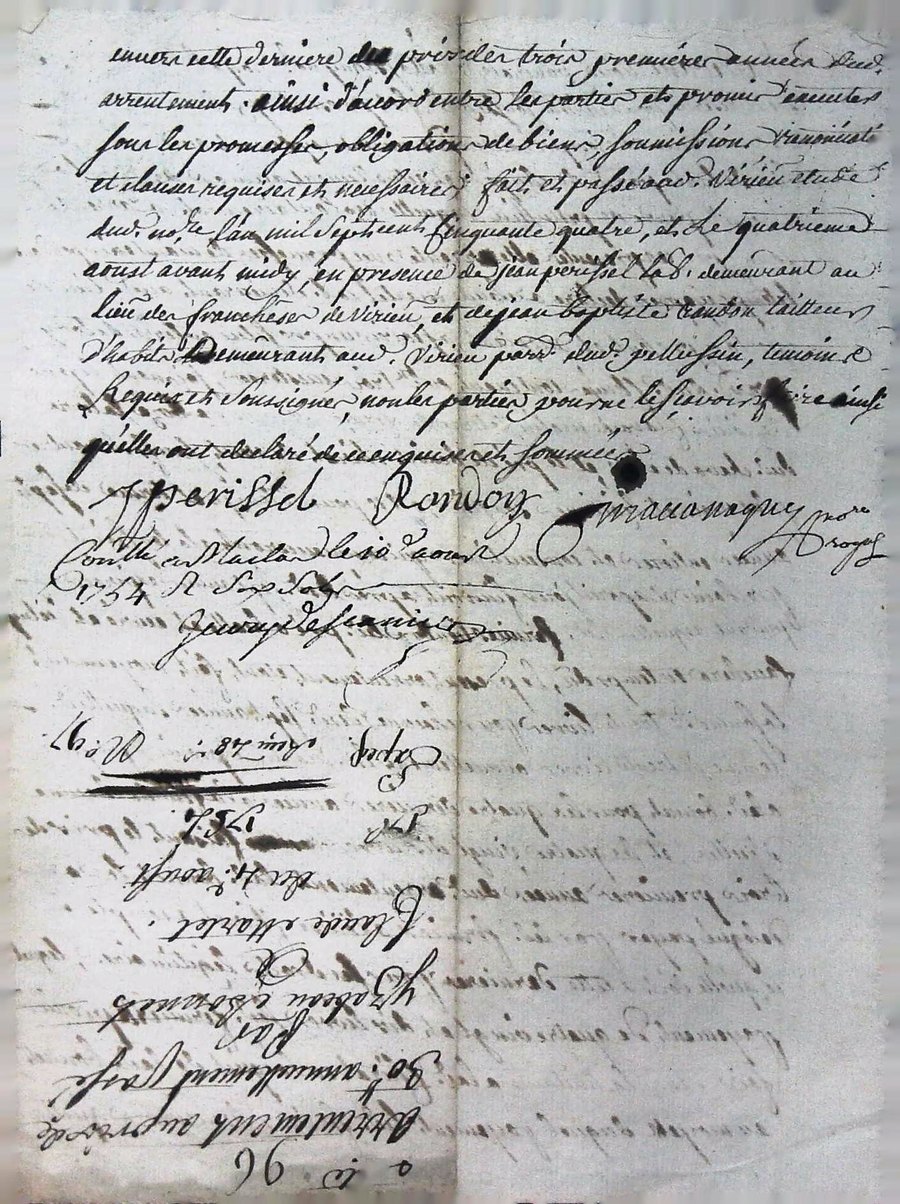 envers cette derniere du prix des trois premieres années dud.
arrentement. ainsi d'acord entre les parties et promis executer
sous les promesses, obligations de biens, soumissions, renonciaõ
et clauses requises et necessaires fait et passé aud. Virieu etude
dud. no.re l'an mil sept cent cinquante quatre, et le quatrieme
aoust avant midy, en presence de jean perissel lab. demeurant au
lieu des franchises de Virieu, et de jean baptiste randon tailleur
d'habits demeurant aud. Virieu parr. dud. pellussin, temoins
Requis et soussignés, non les parties pour ne le sçavoir faire ainsi
qu'elles ont declaré de ce enquises et sommées
J perissel Randon
no.re royal
Conllé a Maclas le 10 d'aoust
1754 R Six Sols
N.o 97
Exped.
175
du 4.e aoust
Claude Mariet.
&
yzabeau Bonnet
Par
30.tt annuellement passé
Arrentement au prix de
96